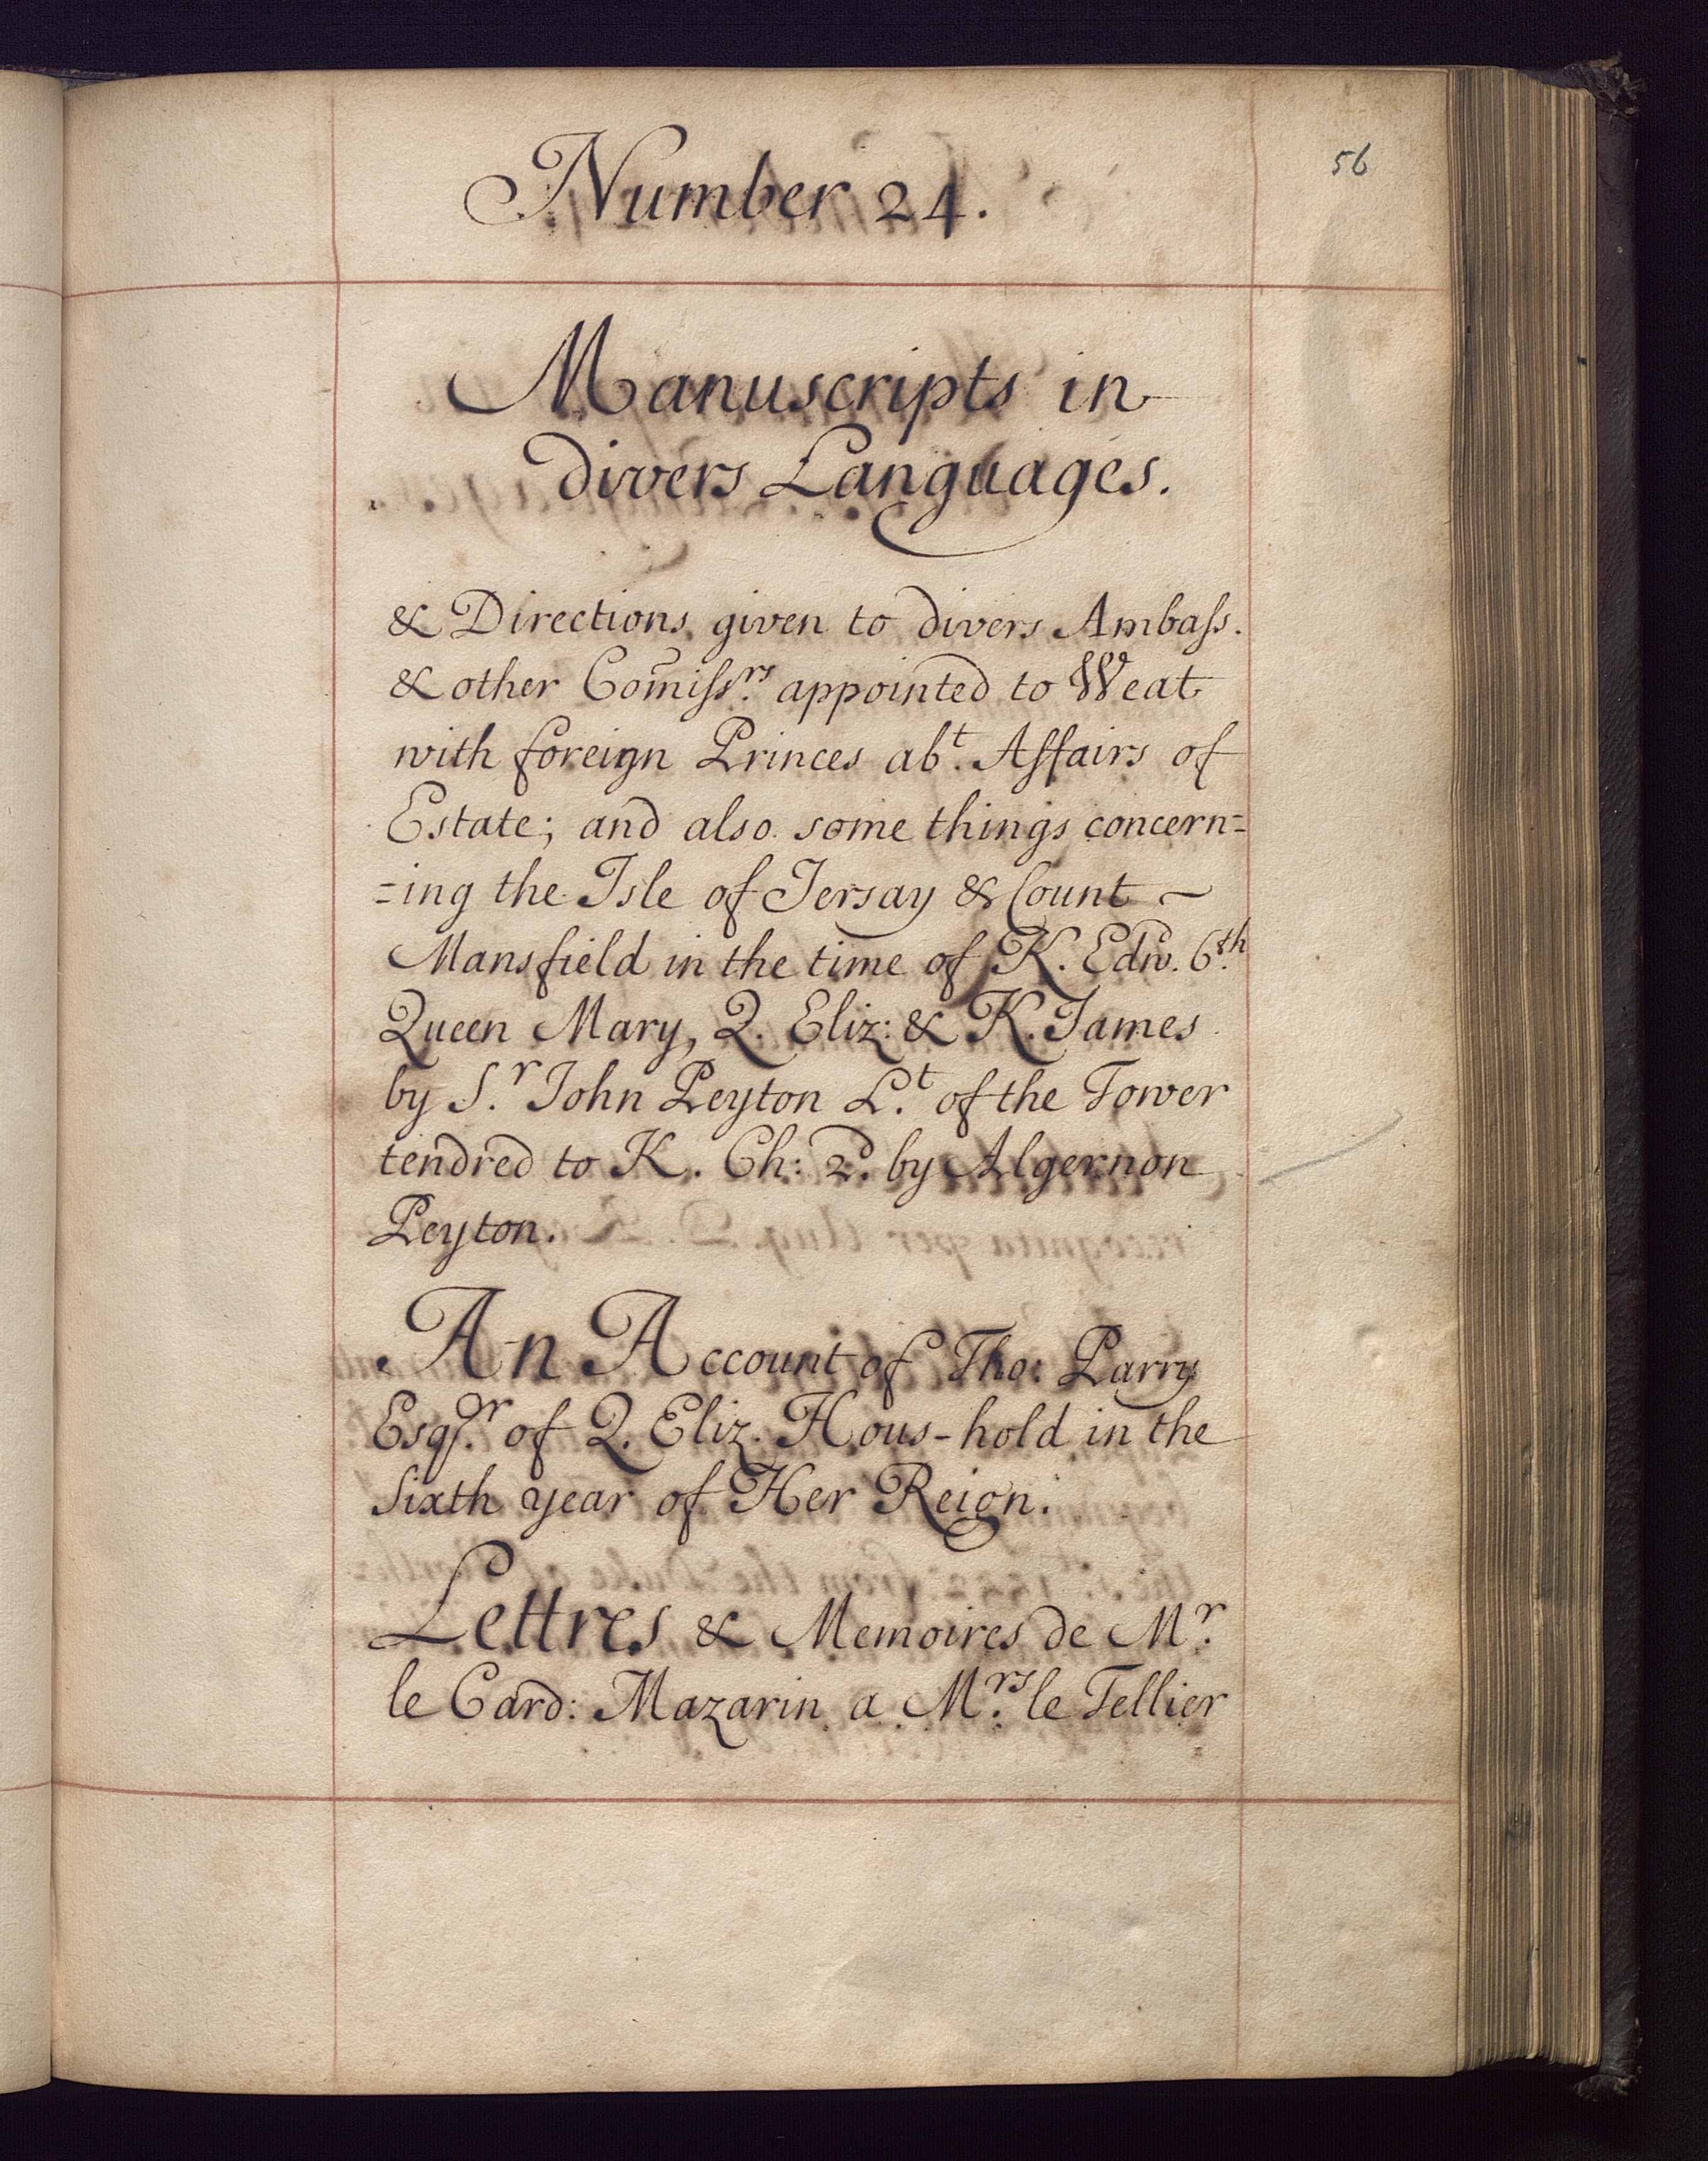 56
Number 24.
Manuscripts in
divers Languages.
& Directions given to divers Ambaſs.
& other Com̃iſsrs. appointed to Weat
with foreign Princes abt. Affairs of
Estate; and also some things concern=
=ing the Isle of Jersay & Count ~
Mansfield in the time of K. Edw. 6th.
Queen Mary, Q. Eliz: & K. James
by Sr. John Peyton Lt. of the Tower
tendred to K. Ch: 2d. by Algernon
Peyton.
An Account of Tho: Parry
Esqr. of Q. Eliz. Hous-hold in the
Sixth year of Her Reign.
Lettres & Memoires de Mr.
le Card: Mazarin a Mrs. le Tellier